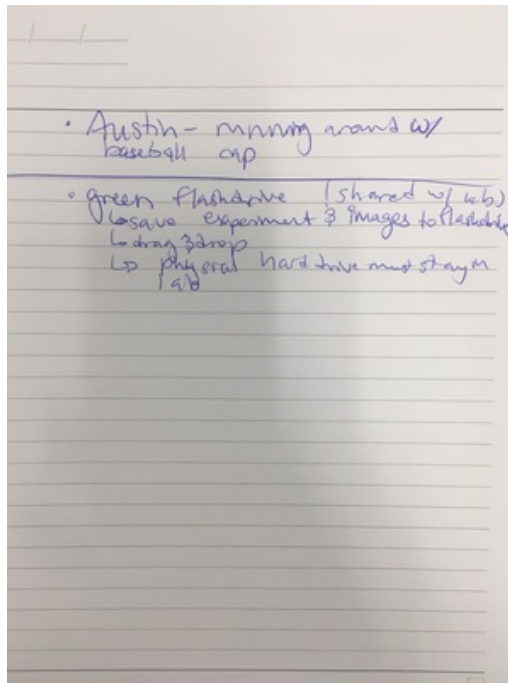 / /
• Austin - running around w/
baseball cap
• green flashdrive (shared w/ lab)
↳ save experiment & images to flashdrive
↳ drag & drop
↳ physical hard drive must stay in
lab